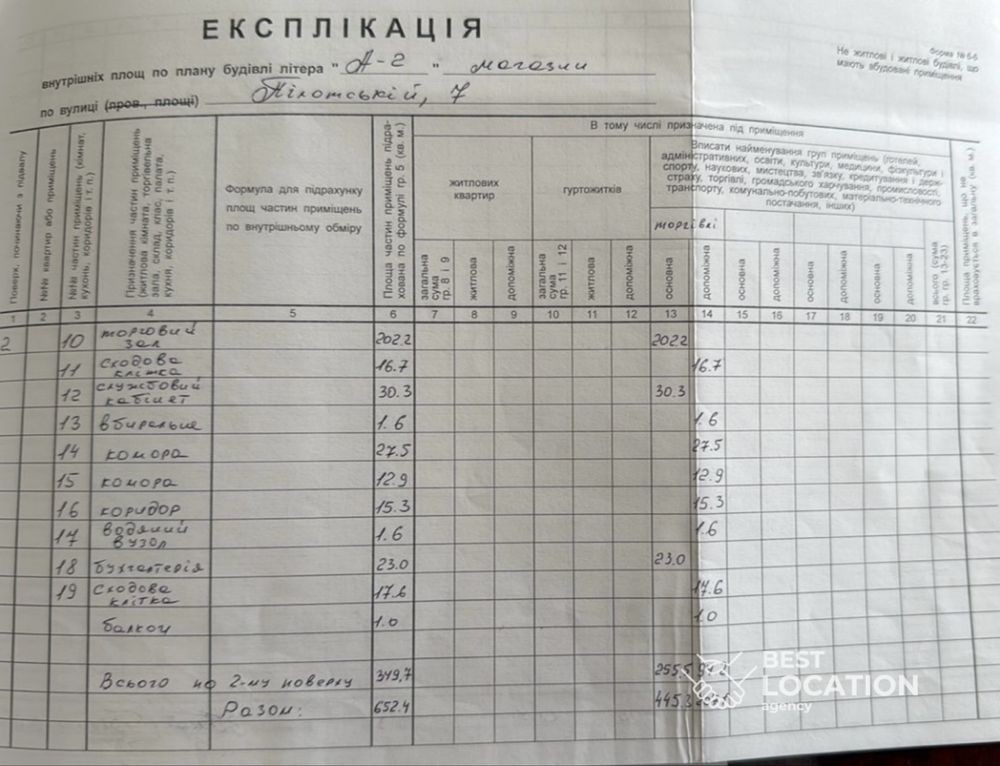 ЕКСПЛІКАЦІЯ
Форма № 6-б
Не житлові і житлові будівлі, що
мають вбудовані приміщення
внутрішніх площ по плану будівлі літера " А-2 " магазин
по вулиці (пров., площі) Пілотській, 7
Поверх, починаючи з підвалу
№№ квартир або приміщень
№№ частин приміщень (кімнат, кухонь, коридорів і т. п.)
Призначення частин приміщень (житлова кімната, торгівельна зала, склад, клас, палата, кухня, коридорів і т. п.)
Формула для підрахунку
площ частин приміщень
по внутрішньому обміру
Площа частин приміщень підрахована по формулі гр. 5 (кв. м.)
В тому числі призначена під приміщення
житлових
квартир
гуртожитків
Вписати найменування груп приміщень (готелей,
адміністративних, освіти, культури, медицини, фізкультури і
спорту, наукових, мистецтва, зв'язку, кредитування і держ-
страху, торгівлі, громадського харчування, промисловості,
транспорту, комунально-побутових, матеріально-технічного
постачання, інших)
торгівлі
загальна сума гр. 8 і 9
житлова
допоміжна
загальна сума гр. 11 і 12
житлова
допоміжна
основна
допоміжна
основна
допоміжна
основна
допоміжна
основна
допоміжна
всього (сума гр. гр. 13-23)
Площа приміщень, що не врахвується в загальну (кв. м.)
1 2 3 4 5 6 7 8 9 10 11 12 13 14 15 16 17 18 19 20 21 22
2 10 торговий зал 202.2 202.2
11 сходова клітка 16.7 16.7
12 службовий кабінет 30.3 30.3
13 вбиральня 1.6 1.6
14 комора 27.5 27.5
15 комора 12.9 12.9
16 коридор 15.3 15.3
17 водяний вузол 1.6 1.6
18 бухгалтерія 23.0 23.0
19 сходова клітка 17.6 17.6
балкон 1.0 1.0
Всього по 2-му поверху 349,7 255.5
Разом: 652.4 445.3
BEST
LOCATION
agency